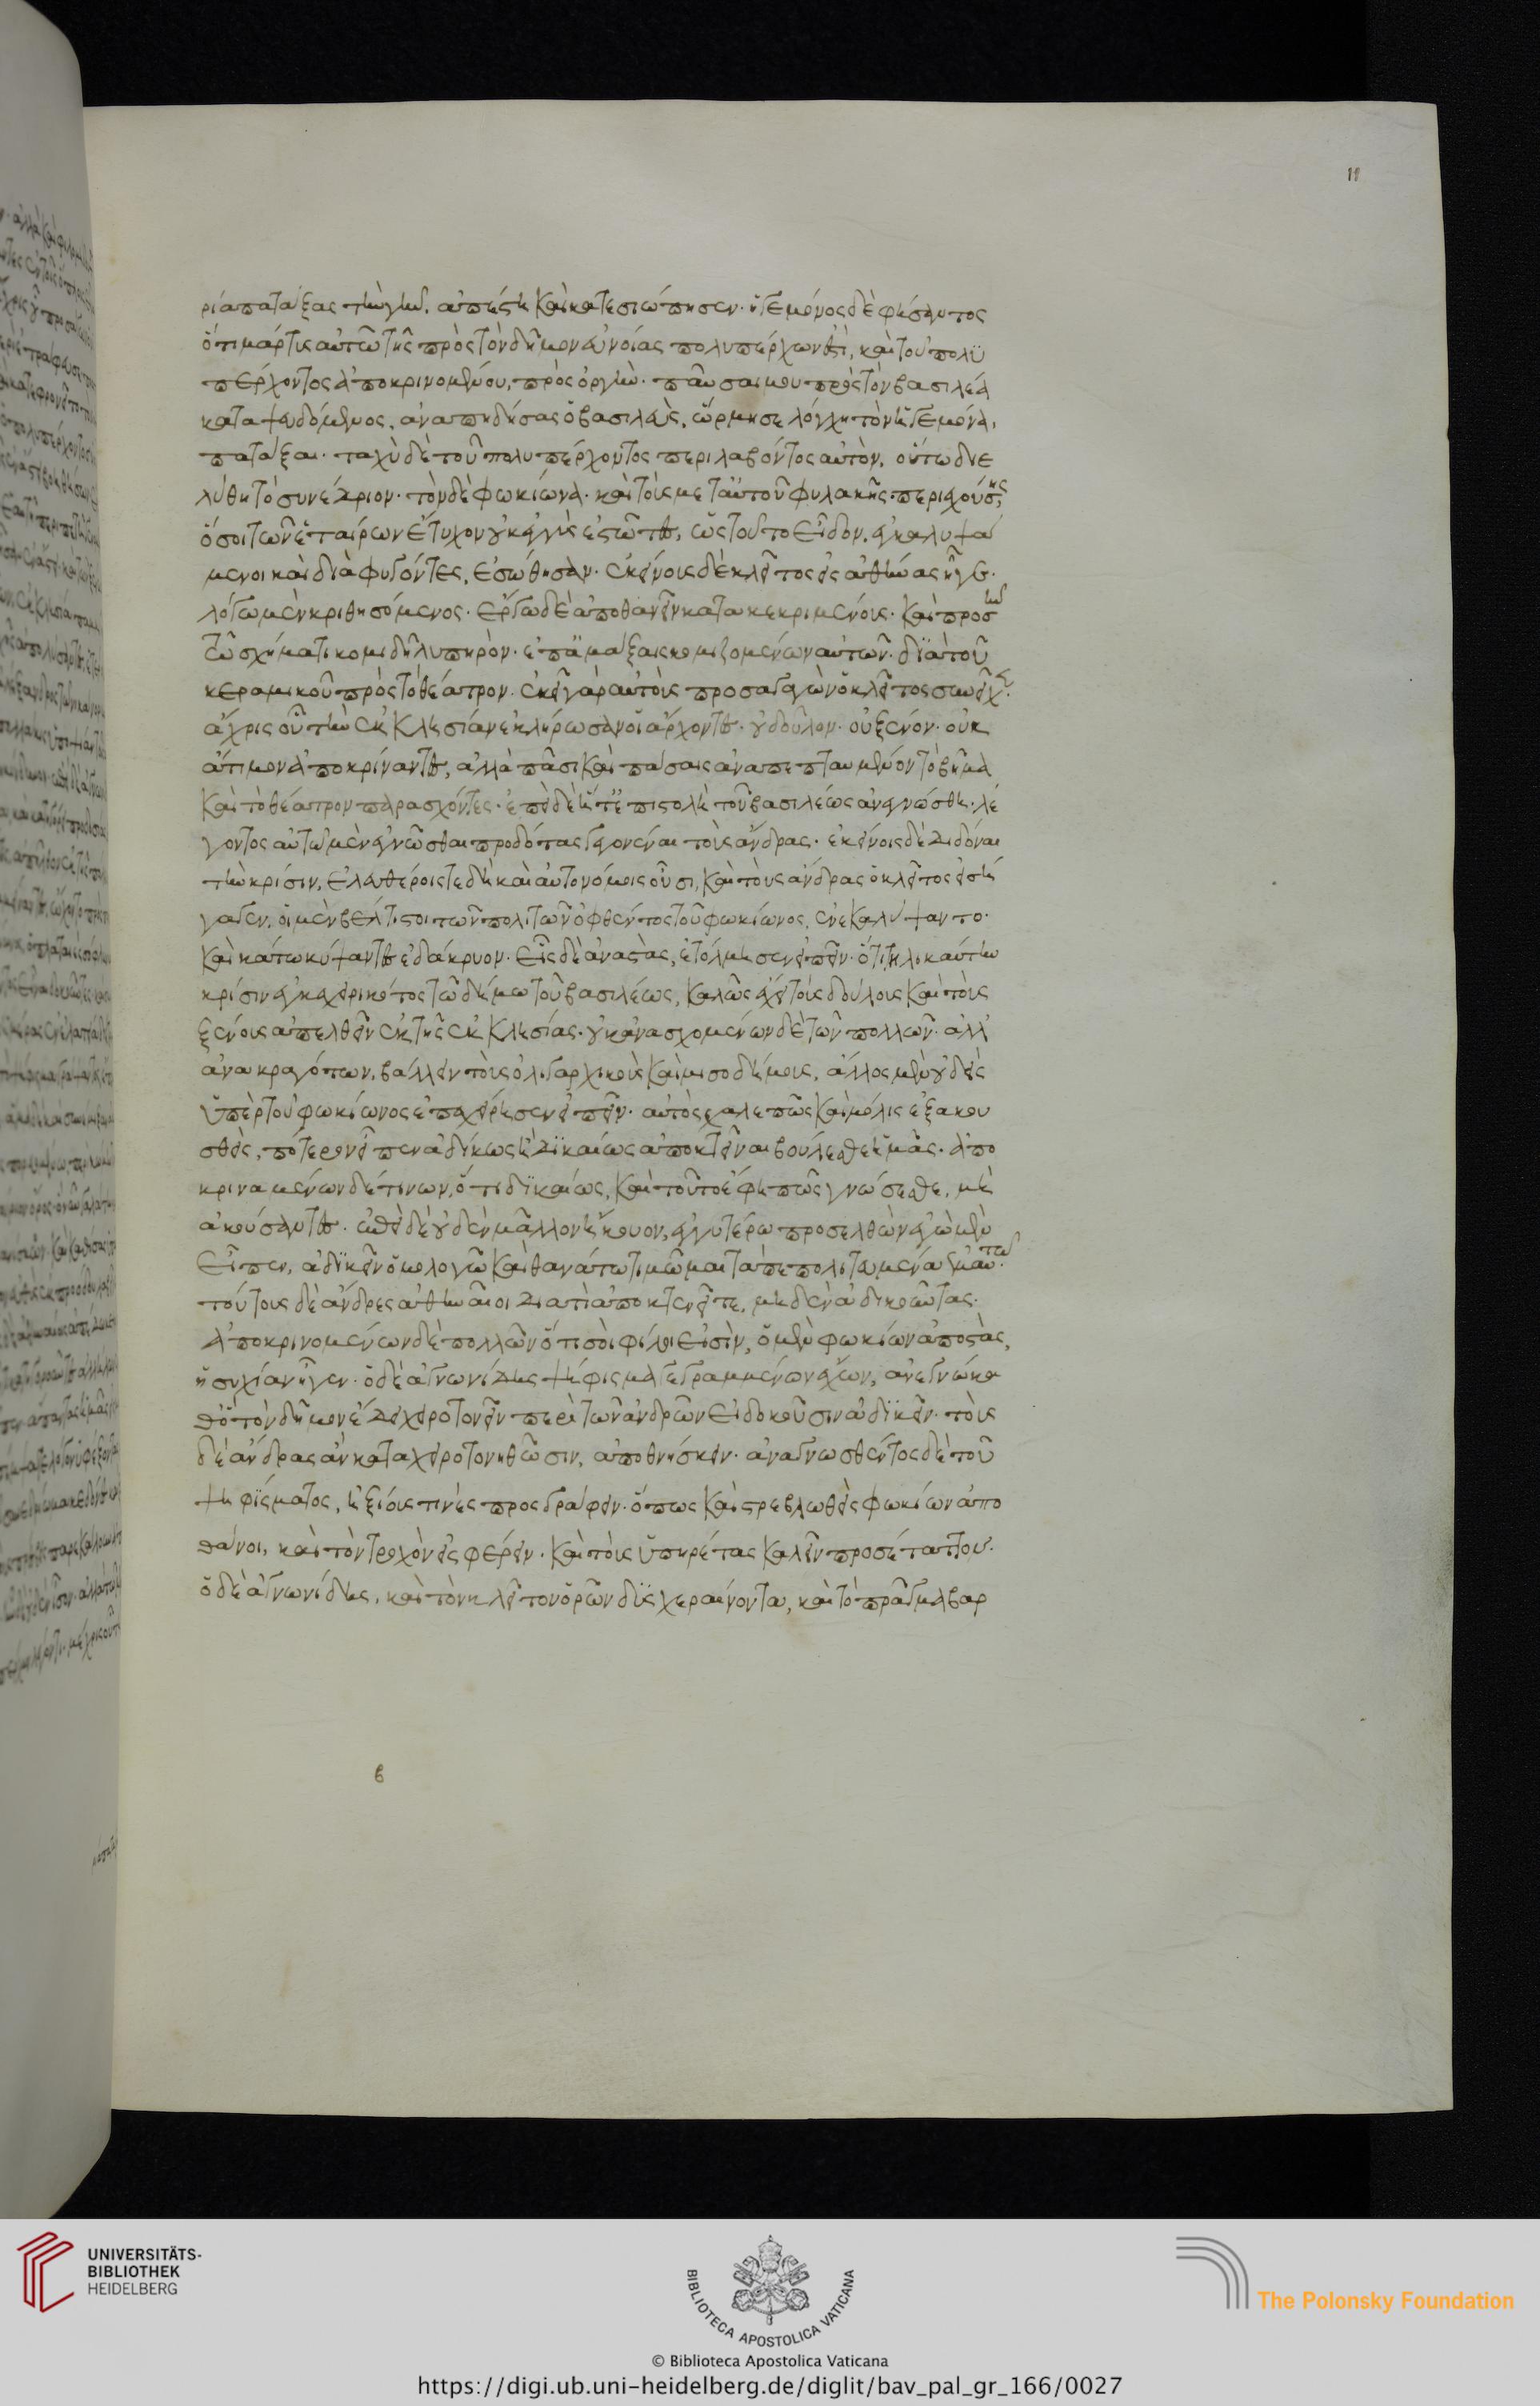 11
ρία πατάξας τὴν γῆν, ἀπέστη καὶ κατεσιώπησεν. ἡγεμόνος δὲ φήσαντος
ὅτι μάρτυς αὐτῶ τῆς πρὸς τὸν δῆμον εὐνοίας πολυπέρχων ἐστὶ, καὶ τοῦ πολυ
πέρχοντος ἀποκρινομένου, πρὸς ὀργὴν. παῦσαι μου πρὸς τὸν βασιλέα
καταψευδόμενος, ἀναπηδήσας ὁ βασιλεὺς, ὥρμησε λόγχη τὸν ἡγεμόνα,
πατάξαι. ταχὺ δὲ τοῦ πολυπέρχοντος περιλαβόντος αὐτὸν, οὕτω διε
λύθη τὸ συνέδριον. τὸν δὲ φωκίωνα. καὶ τοὺς μετ' αὐτοῦ φυλακῆς περισχούσης,
ὅσοι τῶν ἑταίρων ἔτυχον οὐκ ἐγγὺς ἑστῶτες, ὡς τοῦτο εἶδον, ἐγκαλυψά
μενοι καὶ διαφυγόντες, ἐσώθησαν. ἐκείνους δὲ κλεῖτος εἰς ἀθήνας ἦγε.
λόγω μὲν κριθησόμενος. ἔργω δὲ ἀποθανεῖν κατακεκριμένους. καὶ προσῆν
τῶ σχήματι κομιδῆ λυπηρὸν. ἐπ' ἁμάξαις κομιζομένων αὐτῶν. διὰ τοῦ
κεραμικοῦ πρὸς τὸ θέατρον. ἐκεῖ γὰρ αὐτοὺς προσαγαγὼν ὁ κλεῖτος συνεῖχεν.
ἄχρις οὗ τὴν ἐκκλησίαν ἐκλήρωσαν οἱ ἄρχοντες. οὐ δοῦλον. οὐ ξενόν. οὐκ
ἄτιμον ἀποκρίναντες, ἀλλὰ πᾶσι καὶ πάσαις ἀναπεπταμένον τὸ βῆμα
καὶ τὸ θέατρον παρασχόντες. ἐπεὶ δὲ ἥ τ' ἐπιστολὴ τοῦ βασιλέως ἀνεγνώσθη. λέ
γοντος αὐτῶ μὲν ἐγνῶσθαι προδότας γεγονέναι τοὺς ἄνδρας. ἐκείνοις δὲ διδόναι
τὴν κρίσιν, ἐλευθέροις τε δὴ καὶ αὐτονόμοις οὖσι, καὶ τοὺς ἄνδρας ὁ κλεῖτος εἰσή
γαγεν, οἱ μὲν βέλτιστοι τῶν πολιτῶν ὀφθέντος τοῦ φωκίωνος, ἐνεκαλύψαντο.
καὶ κάτω κύψαντες ἐδάκρυον. εἷς δὲ ἀναστὰς, ἐτόλμησεν εἰπεῖν. ὅτι τηλικαύτην
κρίσιν ἐγκεχειρικότος τῶ δήμω τοῦ βασιλέως, καλῶς ἔχει τοὺς δούλους καὶ τοὺς
ξένους ἀπελθεῖν ἐκ τῆς ἐκκλησίας. οὐκ ἀνασχομένων δὲ τῶν πολλῶν. ἀλλ'
ἀνακραγόντων, βάλλειν τοὺς ὀλιγαρχικοὺς καὶ μισοδήμους, ἄλλος μὲν οὐδεὶς
ὑπὲρ τοῦ φωκίωνος ἐπεχείρησεν εἰπεῖν. αὐτὸς χαλεπῶς καὶ μόλις ἐξακου
σθεὶς, πότερον εἶπεν ἀδίκως ἢ δικαίως ἀποκτεῖναι βούλεσθε ἡμᾶς. ἀπο
κριναμένων δέ τινων, ὅτι δικαίως, καὶ τοῦτο ἔφη πῶς γνώσεσθε, μὴ
ἀκούσαντες. ἐπεὶ δὲ οὐδὲν μᾶλλον ἤκουον, ἐγγυτέρω προσελθὼν ἐγὼ μὲν
εἶπεν, ἀδικεῖν ὁμολογῶ καὶ θανάτω τιμῶμαι τὰ πεπολιτευμένα ἐμαυτῶ.
τούτους δὲ ἄνδρες ἀθηναῖοι διατὶ ἀποκτενεῖτε, μηδὲν ἀδικοῦντας.
ἀποκρινομένων δὲ πολλῶν ὅτι σοὶ φίλοι εἰσὶν, ὁ μὲν φωκίων ἀποστὰς,
ἡσυχίαν ἦγεν. ὁ δὲ ἀγνωνίδης ψήφισμα γεγραμμένον ἔχων, ἀνεγνώκα
θ' ὃ τὸν δῆμον ἔδει χειροτονεῖν περὶ τῶν ἀνδρῶν εἰ δοκοῦσιν ἀδικεῖν. τοὺς
δὲ ἄνδρας ἂν καταχειροτονηθῶσιν, ἀποθνήσκειν. ἀναγνωσθέντος δὲ τοῦ
ψηφίσματος, ἠξίουν τινὲς προσγράφειν. ὅπως καὶ στρεβλωθεὶς φωκίων ἀπο
θάνοι, καὶ τὸν τροχὸν εἰσφέρειν. καὶ τοὺς ὑπηρέτας καλεῖν προσέταττον.
ὁ δὲ ἀγνωνίδης, καὶ τὸν κλεῖτον ὁρῶν δυσχεραίνοντα, καὶ τὸ πρᾶγμα βαρ
β
UNIVERSITÄTS-
BIBLIOTHEK
HEIDELBERG
BIBLIOTECA APOSTOLICA VATICANA
© Biblioteca Apostolica Vaticana
The Polonsky Foundation
https://digi.ub.uni-heidelberg.de/diglit/bav_pal_gr_166/0027